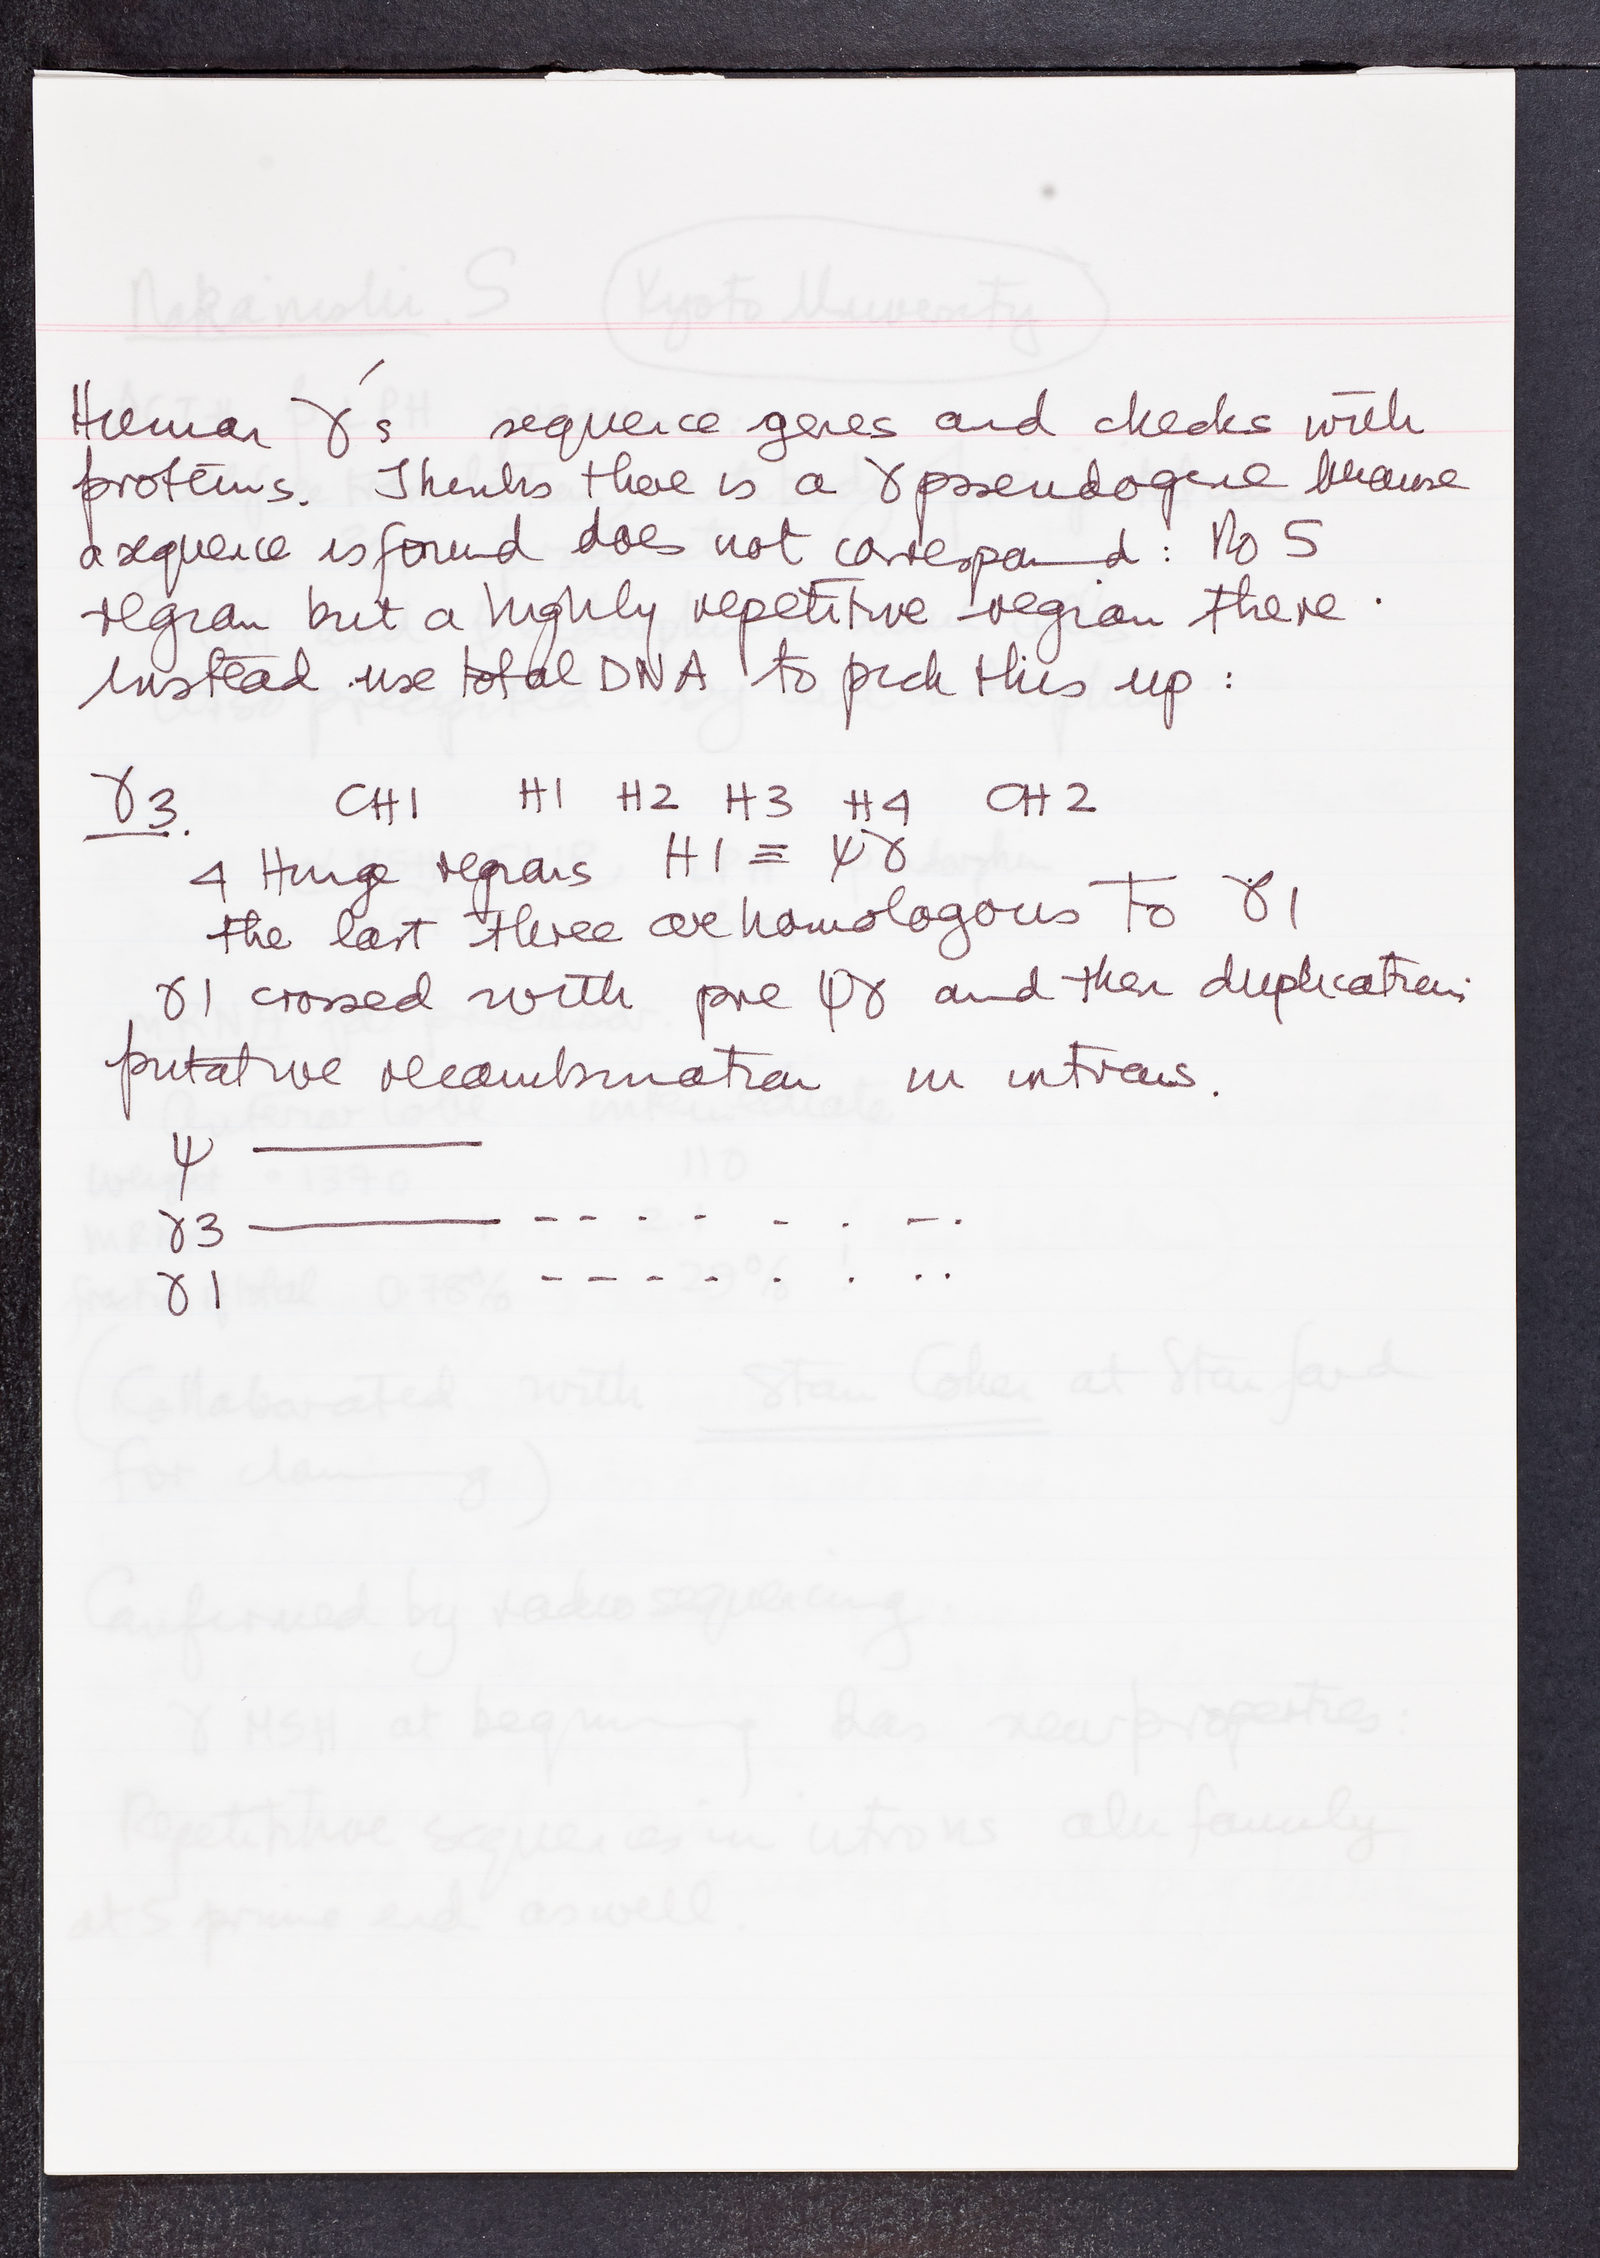 Human γ's sequence genes and checks with
proteins. Thinks there is a γ pseudogene because
a sequence is found does not correspond: No S
region but a highly repetitive region there.
instead use total DNA to pick this up:
γ3. CH1 H1 H2 H3 H4 CH2
4 Hinge regions H1 ≡ ψγ
the last three are homologous to γ1
γ1 crossed with pre ψγ and then duplication:
putative recombination in introns.
ψ
γ3
γ1